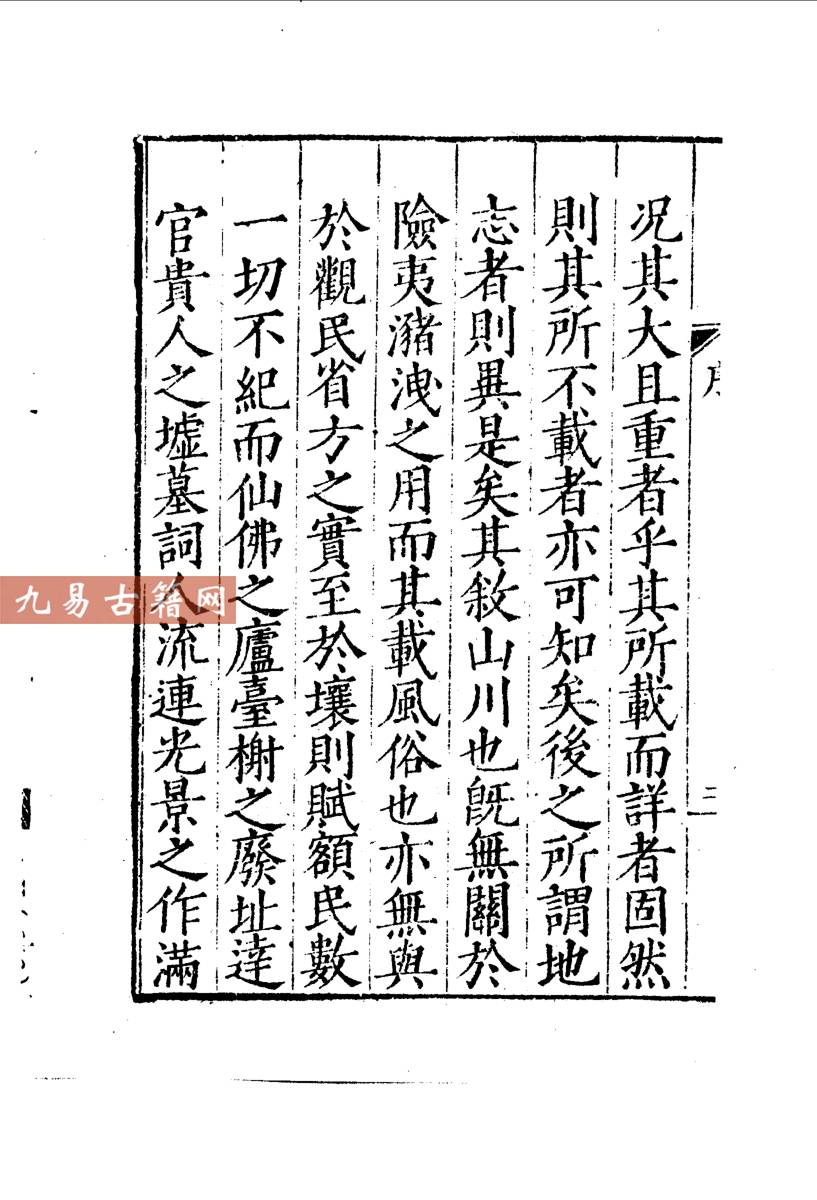 况其大且重者乎其所載而詳者固然
則其所不載者亦可知矣後之所謂地
志者則異是矣其敘山川也旣無關於
險夷瀦洩之用而其載風俗也亦無與
於觀民省方之實至於壤則賦額民數
一切不紀而仙佛之廬臺榭之廢址達
官貴人之墟墓詞人流連光景之作滿
九易古籍网